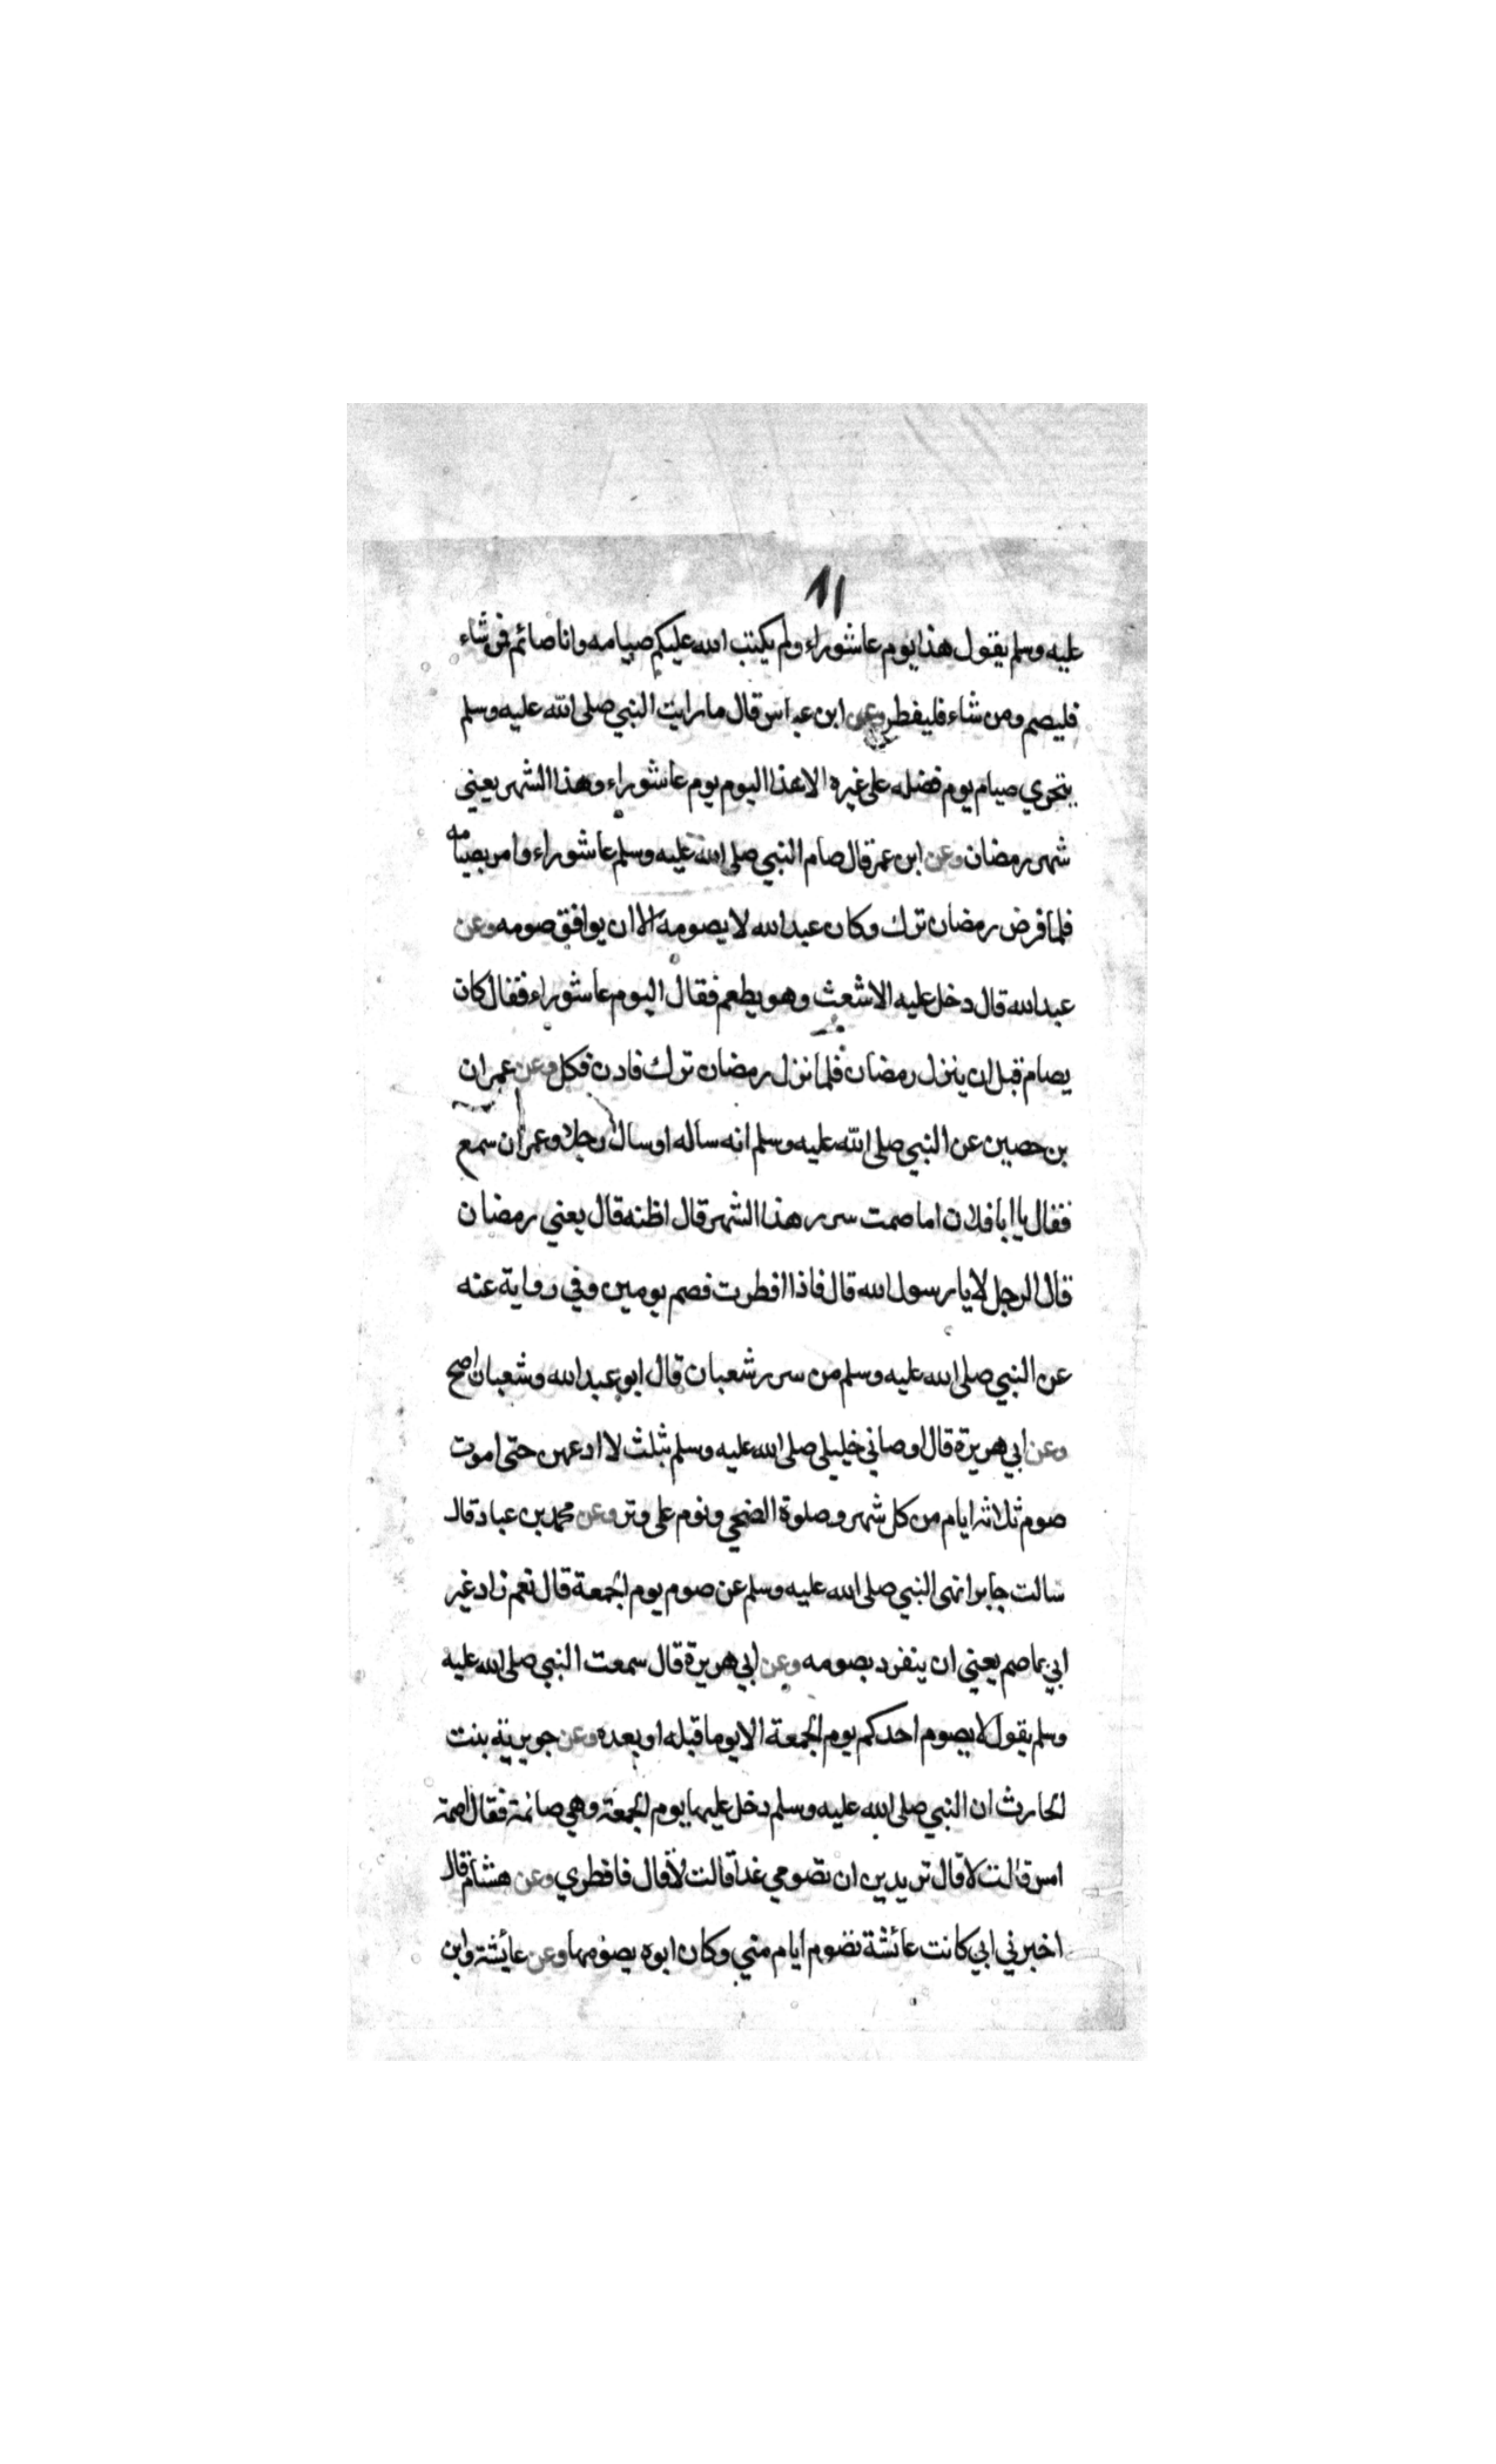 ١١
عليه وسلم يقول هذا يوم عاشوراء ولم يكتب الله عليكم صيامه وانا صائم فمن شاء
فليصم ومن شاء فليفطر وعن ابن عباس قال ما رايت النبي صلى الله عليه وسلم
يتحري صيام يوم فضله على غيره الا هذا اليوم يوم عاشوراء وهذا الشهر يعني
شهر رمضان وعن ابن عمر قال صام النبي صلى الله عليه وسلم عاشوراء وامر بصيامه
فلما فرض رمضان ترك وكان عبد الله لا يصومه الا ان يوافق صومه وعن
عبد الله قال دخل عليه الاشعث وهو يطعم فقال اليوم عاشوراء فقال كان
يصام قبل ان ينزل رمضان فلما نزل رمضان ترك فادن فكل وعن عمران
بن حصين عن النبي صلى الله عليه وسلم انه ساله او سال رجلا وعمران سمع
فقال يا ابا فلان اما صمت سرر هذا الشهر قال اظنه قال يعني رمضان
قال الرجل لا يا رسول الله قال فاذا افطرت فصم يومين وفي رواية عنه
عن النبي صلى الله عليه وسلم من سرر شعبان قال ابو عبد الله وشعبان اصح
وعن ابي هريرة قال اوصاني خليلي صلى الله عليه وسلم بثلث لا ادعهن حتى اموت
صوم ثلاثة ايام من كل شهر وصلوة الضحي ونوم على وتر وعن محمد بن عباد قال
سالت جابرا نهى النبي صلى الله عليه وسلم عن صوم يوم الجمعة قال نعم زاد غير
ابي عاصم يعني ان ينفرد بصومه وعن ابي هريرة قال سمعت النبي صلى الله عليه
وسلم يقول لا يصوم احدكم يوم الجمعة الا يوما قبله او بعده وعن جويرية بنت
الحارث ان النبي صلى الله عليه وسلم دخل عليها يوم الجمعة وهي صائمة فقال اصمت
امس قالت لا قال تريدين ان تصومي غدا قالت لا قال فافطري وعن هشام قال
اخبرني ابي كانت عائشة تصوم ايام مني وكان ابوه يصومها وعن عائشة وابن